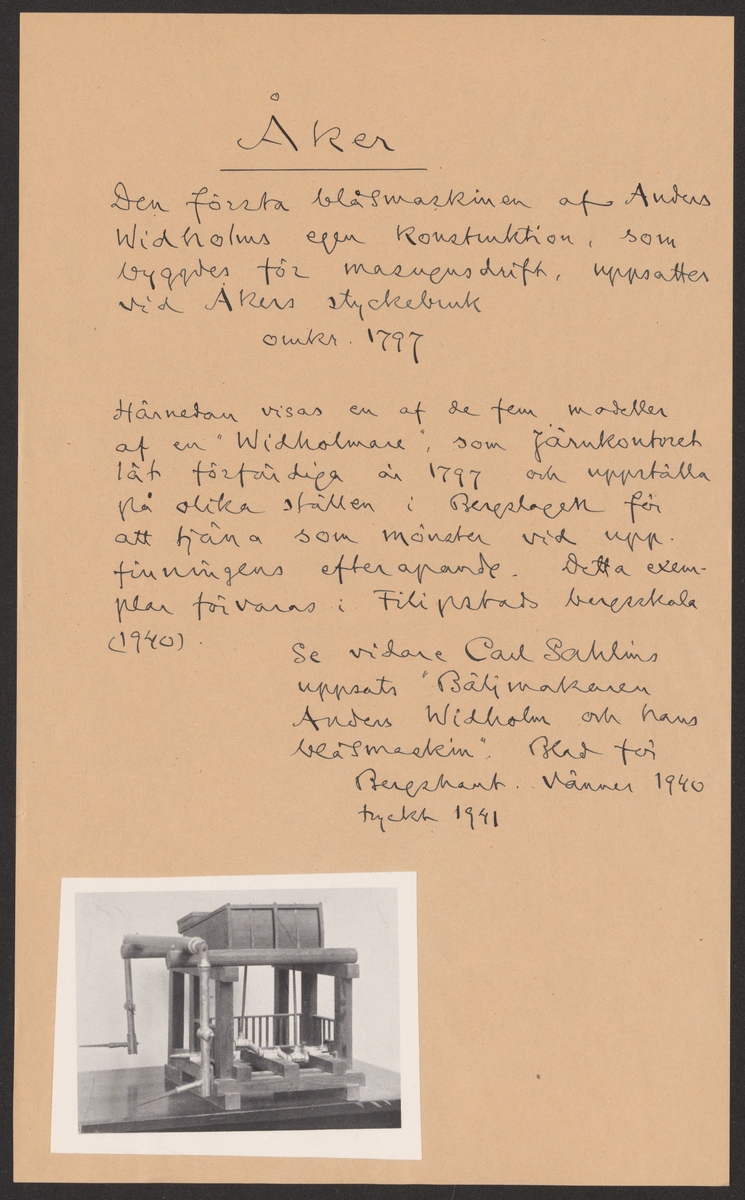 Åker
Den första blåsmaskinen af Anders
Widholms egen konstruktion, som
byggdes för masugnsdrift, uppsattes
vid Åkers styckebruk
omkr. 1797
Härnedan visas en af de fem modeller
af en "Widholmare", som Järnkontoret
låt förfärdiga år 1797 och uppställa
på olika ställen i Bergslagen för
att tjäna som mönster vid upp-
finningens efterapande. Detta exem-
plar förvaras i Filipstads bergsskola
(1940).
Se vidare Carl Sahlins
uppsats "Bäljmakaren
Anders Widholm och hans
blåsmaskin". Blad för
Bergshant. Vänner 1940
tryckt 1941